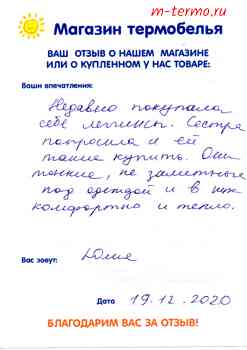 m-termo.ru
Магазин термобелья
ВАШ ОТЗЫВ О НАШЕМ МАГАЗИНЕ
ИЛИ О КУПЛЕННОМ У НАС ТОВАРЕ:
Ваши впечатления:
Недавно покупала
себе леггинсы. Сестра
попросила и ей
такие купить. Они
тонкие, не заметные
под одеждой и в них
комфортно и тепло.
Вас зовут: Юлия
Дата 19.12.2020
БЛАГОДАРИМ ВАС ЗА ОТЗЫВ!